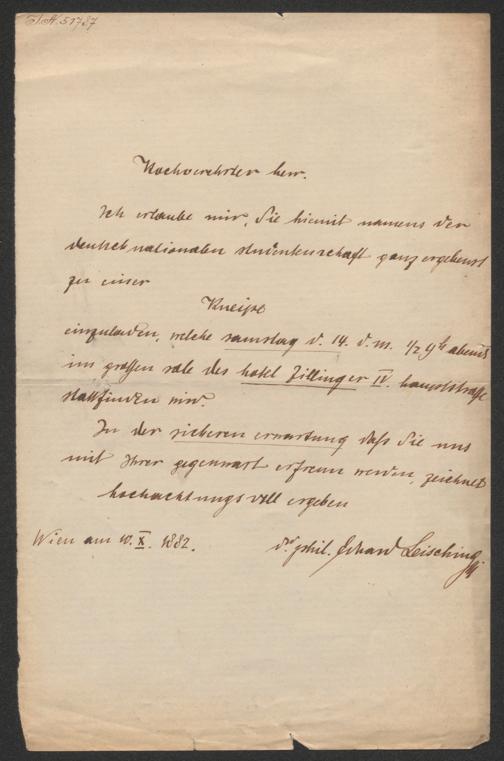 I.N. 51787
Hochverehrter herr.
Ich erlaube mir, Sie hiemit namens der
deutschnationalen studentenschaft ganz ergebenst
zu einer
Kneipe
einzuladen, welche samstag d. 14. d. m. 1/2 9h abends
im großen sale des hotel Zillinger IV. hauptstraße
stattfinden wird.
In der sicheren erwartung daß Sie uns
mit Ihrer gegenwart erfreuen werden, zeichnet
hochachtungsvoll ergeben
Wien am 10. X. 1882.
dr phil. Eduard Leisching